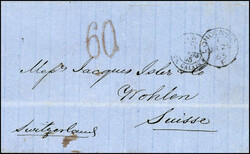 60
Messrs Jacques Isler & Co
Wohlen
Suisse
Switzerland